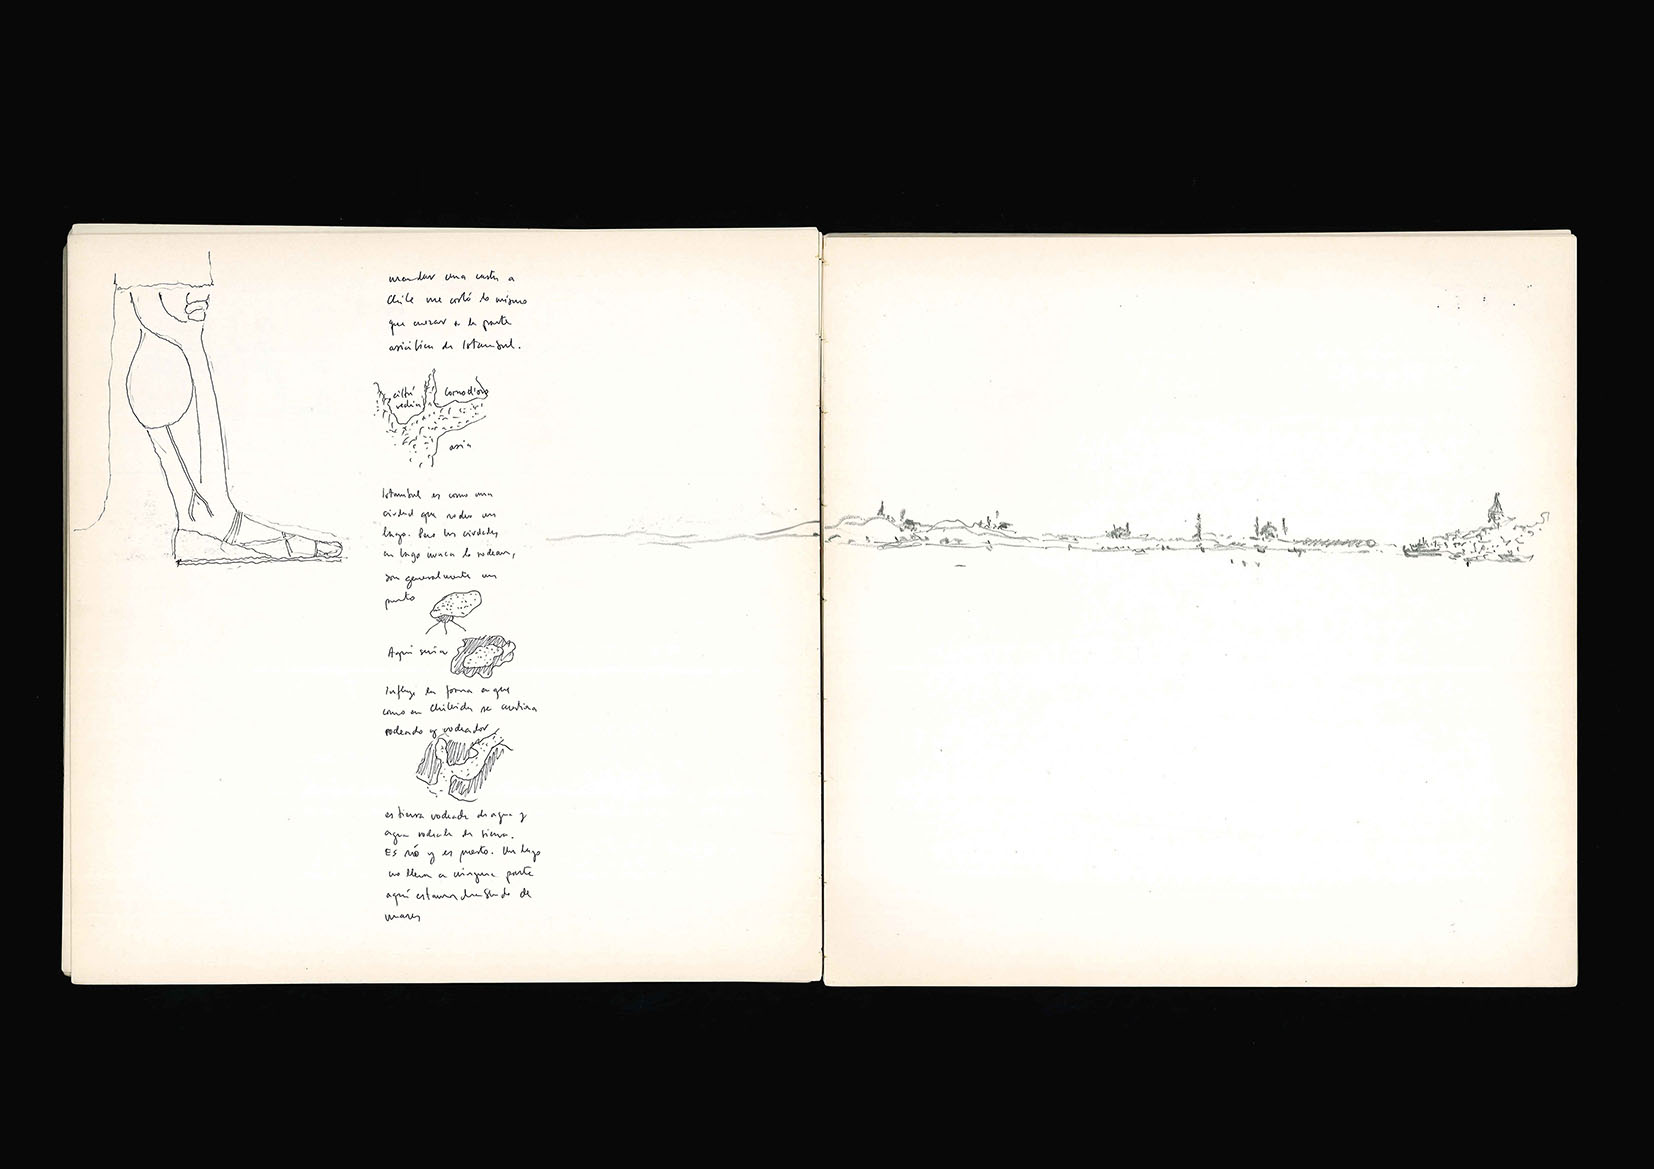 mandar una carta a
Chile me costó lo mismo
que cruzar a la parte
asiática de Istambul.
cittá
vechia
Corno d'oro
asia
Istambul es como una
ciudad que rodea un
lago. Pero las ciudades
en lago nunca lo rodean,
son generalmente un
punto
Aquí sería
Influye la forma en que
como en Chillida se
rodeado y rodeador
es tierra rodeada de agua y
agua rodeada de tierra.
Es río y es puerto. Un lago
no lleva a ninguna parte
aquí estamos de
mares